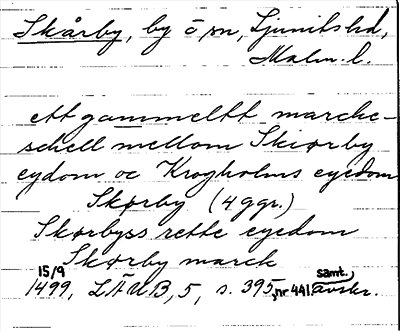 Skårby, by o sn, Ljunits hd,
Malm. l.
ett gammeltt marcke-
schell mellom Skiørby
eydom oc Krogholms eyedom
Skørby (4 ggr.)
Skørbyss rette eyedom
Skørby marck
15/9
1499, LÄUB, 5, s. 395, nr 441, samt. avskr.